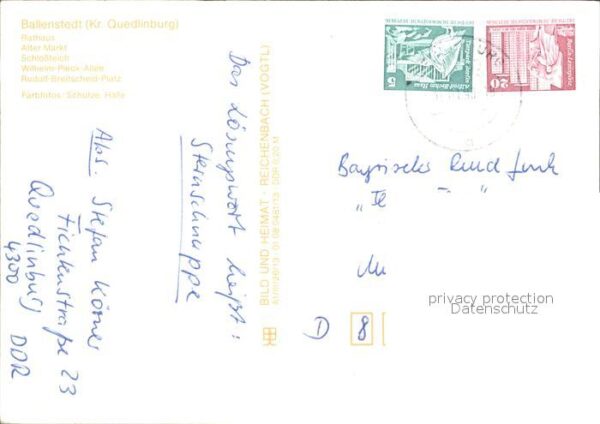 Ballenstedt (Kr. Quedlinburg)
Rathaus
Alter Markt
Schloßteich
Wilheim-Pieck-Allee
Rudolf-Breitscheid-Platz
Farbfotos: Schulze, Halle
Das Lösungswort heißt:
Sternschnuppe
Abs. Stefan Körner
23
Quedlinburg
4300
DDR
BILD UND HEIMAT · REICHENBACH (VOGTL)
DDR 0,20 M
5
20
Bayrischer Rundfunk
privacy protection
Datenschutz
D 8